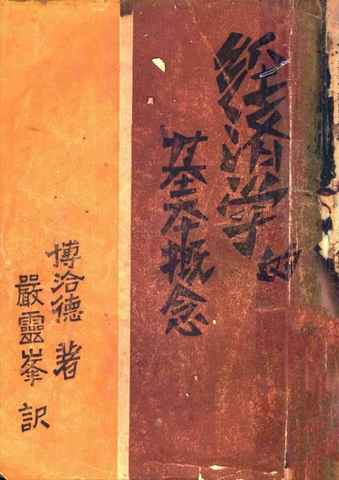 経済学的
基本概念
博洽德 著
嚴靈峯 訳